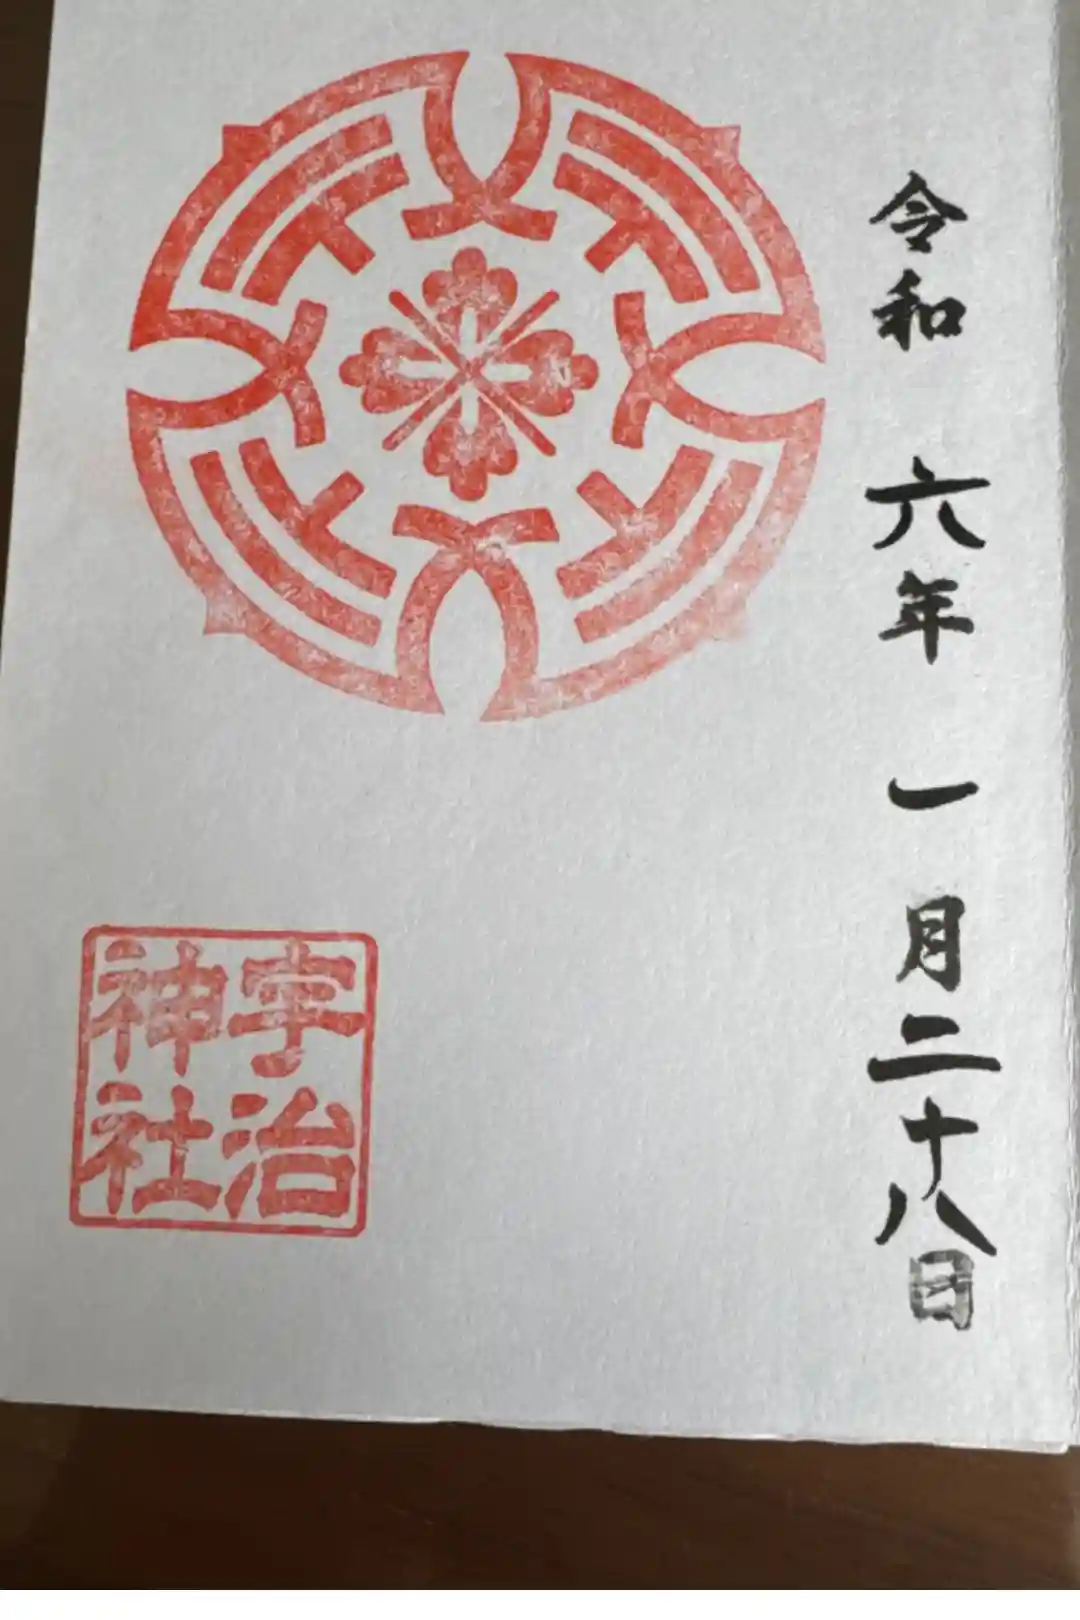 令和六年一月二十八日
宇治
神社